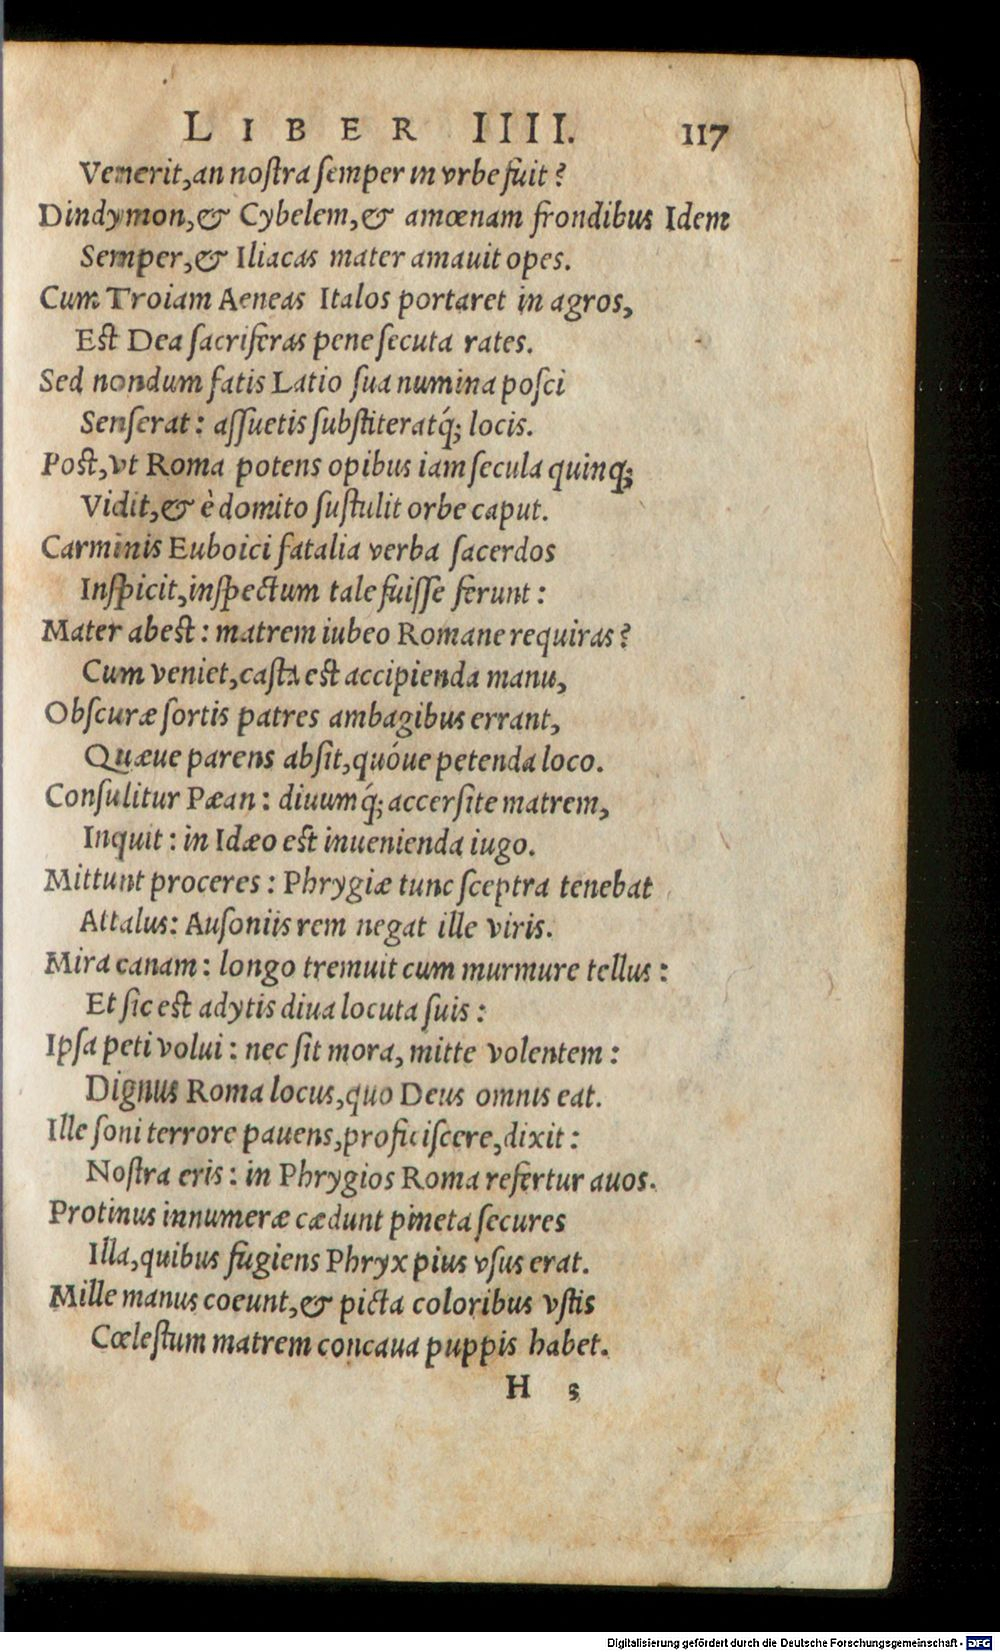 LIBER IIII. 117
Venerit, an noſtra ſemper in vrbe fuit?
Dindymon, & Cybelem, & amœnam frondibus Idem
Semper, & Iliacas mater amauit opes.
Cum Troiam Aeneas Italos portaret in agros,
Eſt Dea ſacriferas pene ſecuta rates.
Sed nondum fatis Latio ſua numina poſci
Senſerat: aſſuetis ſubſtiteratq́; locis.
Poſt, vt Roma potens opibus iam ſecula quinq;
Vidit, & è domito ſuſtulit orbe caput.
Carminis Euboici fatalia verba ſacerdos
Inſpicit, inſpectum tale fuiſſe ferunt:
Mater abeſt: matrem iubeo Romane requiras?
Cum veniet, caſta eſt accipienda manu,
Obſcuræ ſortis patres ambagibus errant,
Quæue parens abſit, quóue petenda loco.
Conſulitur Pæan: diuumq́; accerſite matrem,
Inquit: in Idæo eſt inuenienda iugo.
Mittunt proceres: Phrygiæ tunc ſceptra tenebat
Attalus: Auſoniis rem negat ille viris.
Mira canam: longo tremuit cum murmure tellus:
Et ſic eſt adytis diua locuta ſuis:
Ipſa peti volui: nec ſit mora, mitte volentem:
Dignus Roma locus, quo Deus omnis eat.
Ille ſoni terrore pauens, proficiſcere, dixit:
Noſtra eris: in Phrygios Roma refertur auos.
Protinus innumeræ cædunt pineta ſecures
Illa, quibus fugiens Phryx pius vſus erat.
Mille manus coeunt, & picta coloribus vſtis
Cœleſtum matrem concaua puppis habet.
H 5
Digitalisierung gefördert durch die Deutsche Forschungsgemeinschaft - DFG